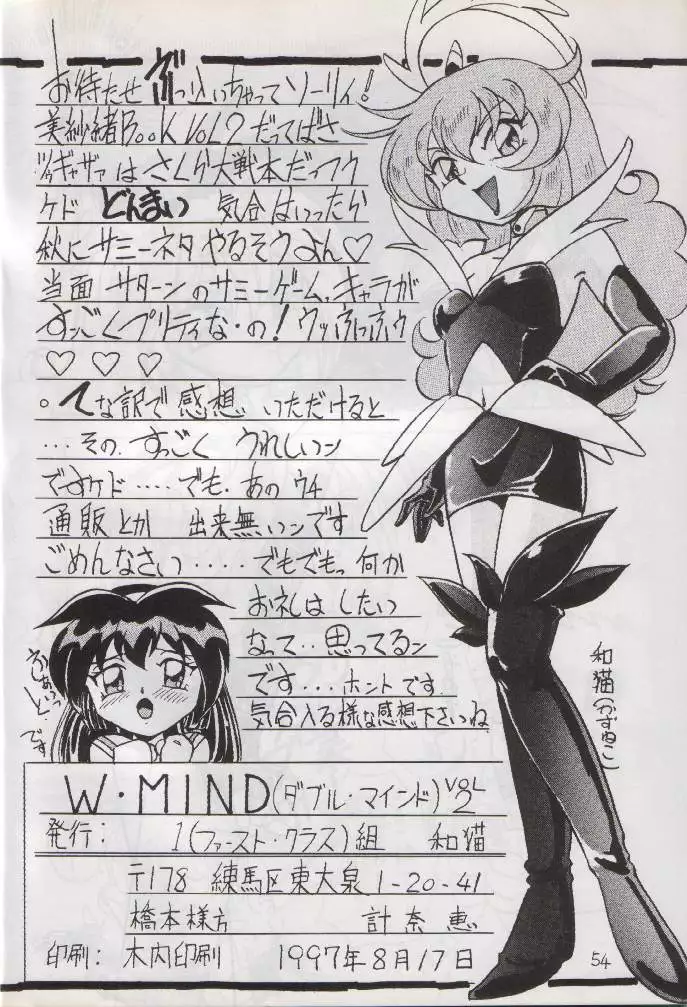 お待たせ ぶっ込いちゃってソーリィ!
美紗緒BooK VoL2 だってばさ
ツゥギャザァ はさくら大戦本だっつウ
ケド どんまい 気合はいったら
秋にサミーネタ やるそうよん♡
当面 サターンのサミーゲーム、キャラが
すっごくプリティな・の! ウッふっふウ
♡ ♡ ♡
。てな訳で 感想 いただけると
...その、すっごく うれしいン
ですケド ....でも、あの ウチ
通販とか 出来無いンです
ごめんなさい ....でもでもっ 何か
お礼は したいっ
なって..思ってるン
です...ホントです
気合入る様な感想下さいね
です
和猫(かずねこ)
W・MIND(ダブル・マインド)VOL2
発行: 1(ファースト・クラス)組 和猫
〒178 練馬区東大泉 1-20-41
橋本様方 計奈恵
印刷: 木内印刷 1997年8月17日
54